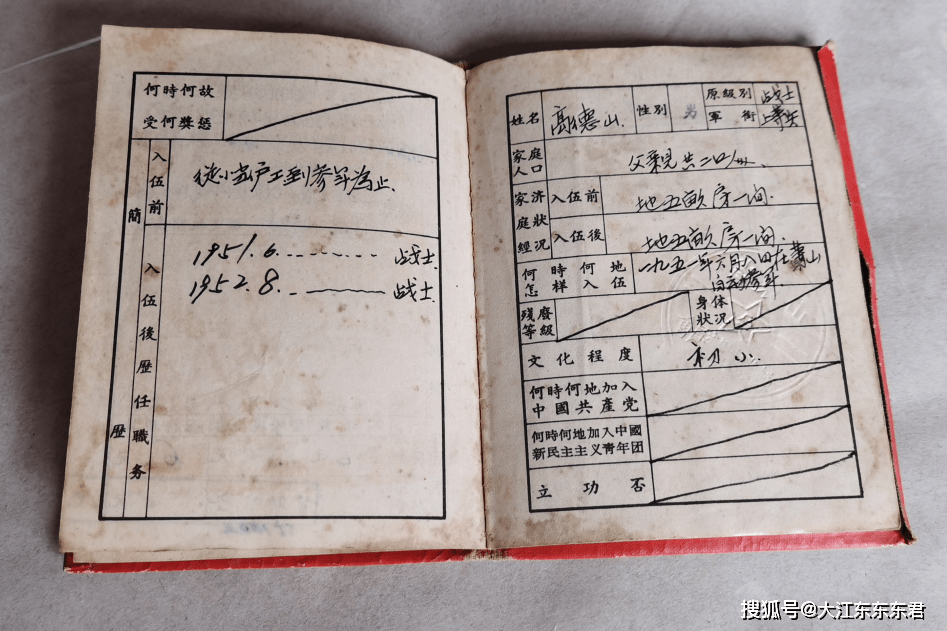 何時何故
受何獎惩
簡歷
入伍前
從小当户工到参军為止.
入伍後歷任職务
1951.6. 战士.
1952.8. 战士.
姓名 高德山. 性别 男 原級別 战士
軍銜 上等兵
家庭人口 父親共二口人.
家庭經济狀況 入伍前 地五亩房一间.
入伍後 地五亩房一间.
何時何地怎样入伍 一九五一年六月八日在萧山
自动参军.
殘廢等級
身体狀況
文化程度 初小.
何時何地加入
中國共產党
何時何地加入中國
新民主主义青年团
立功否
搜狐号@大江东东东君